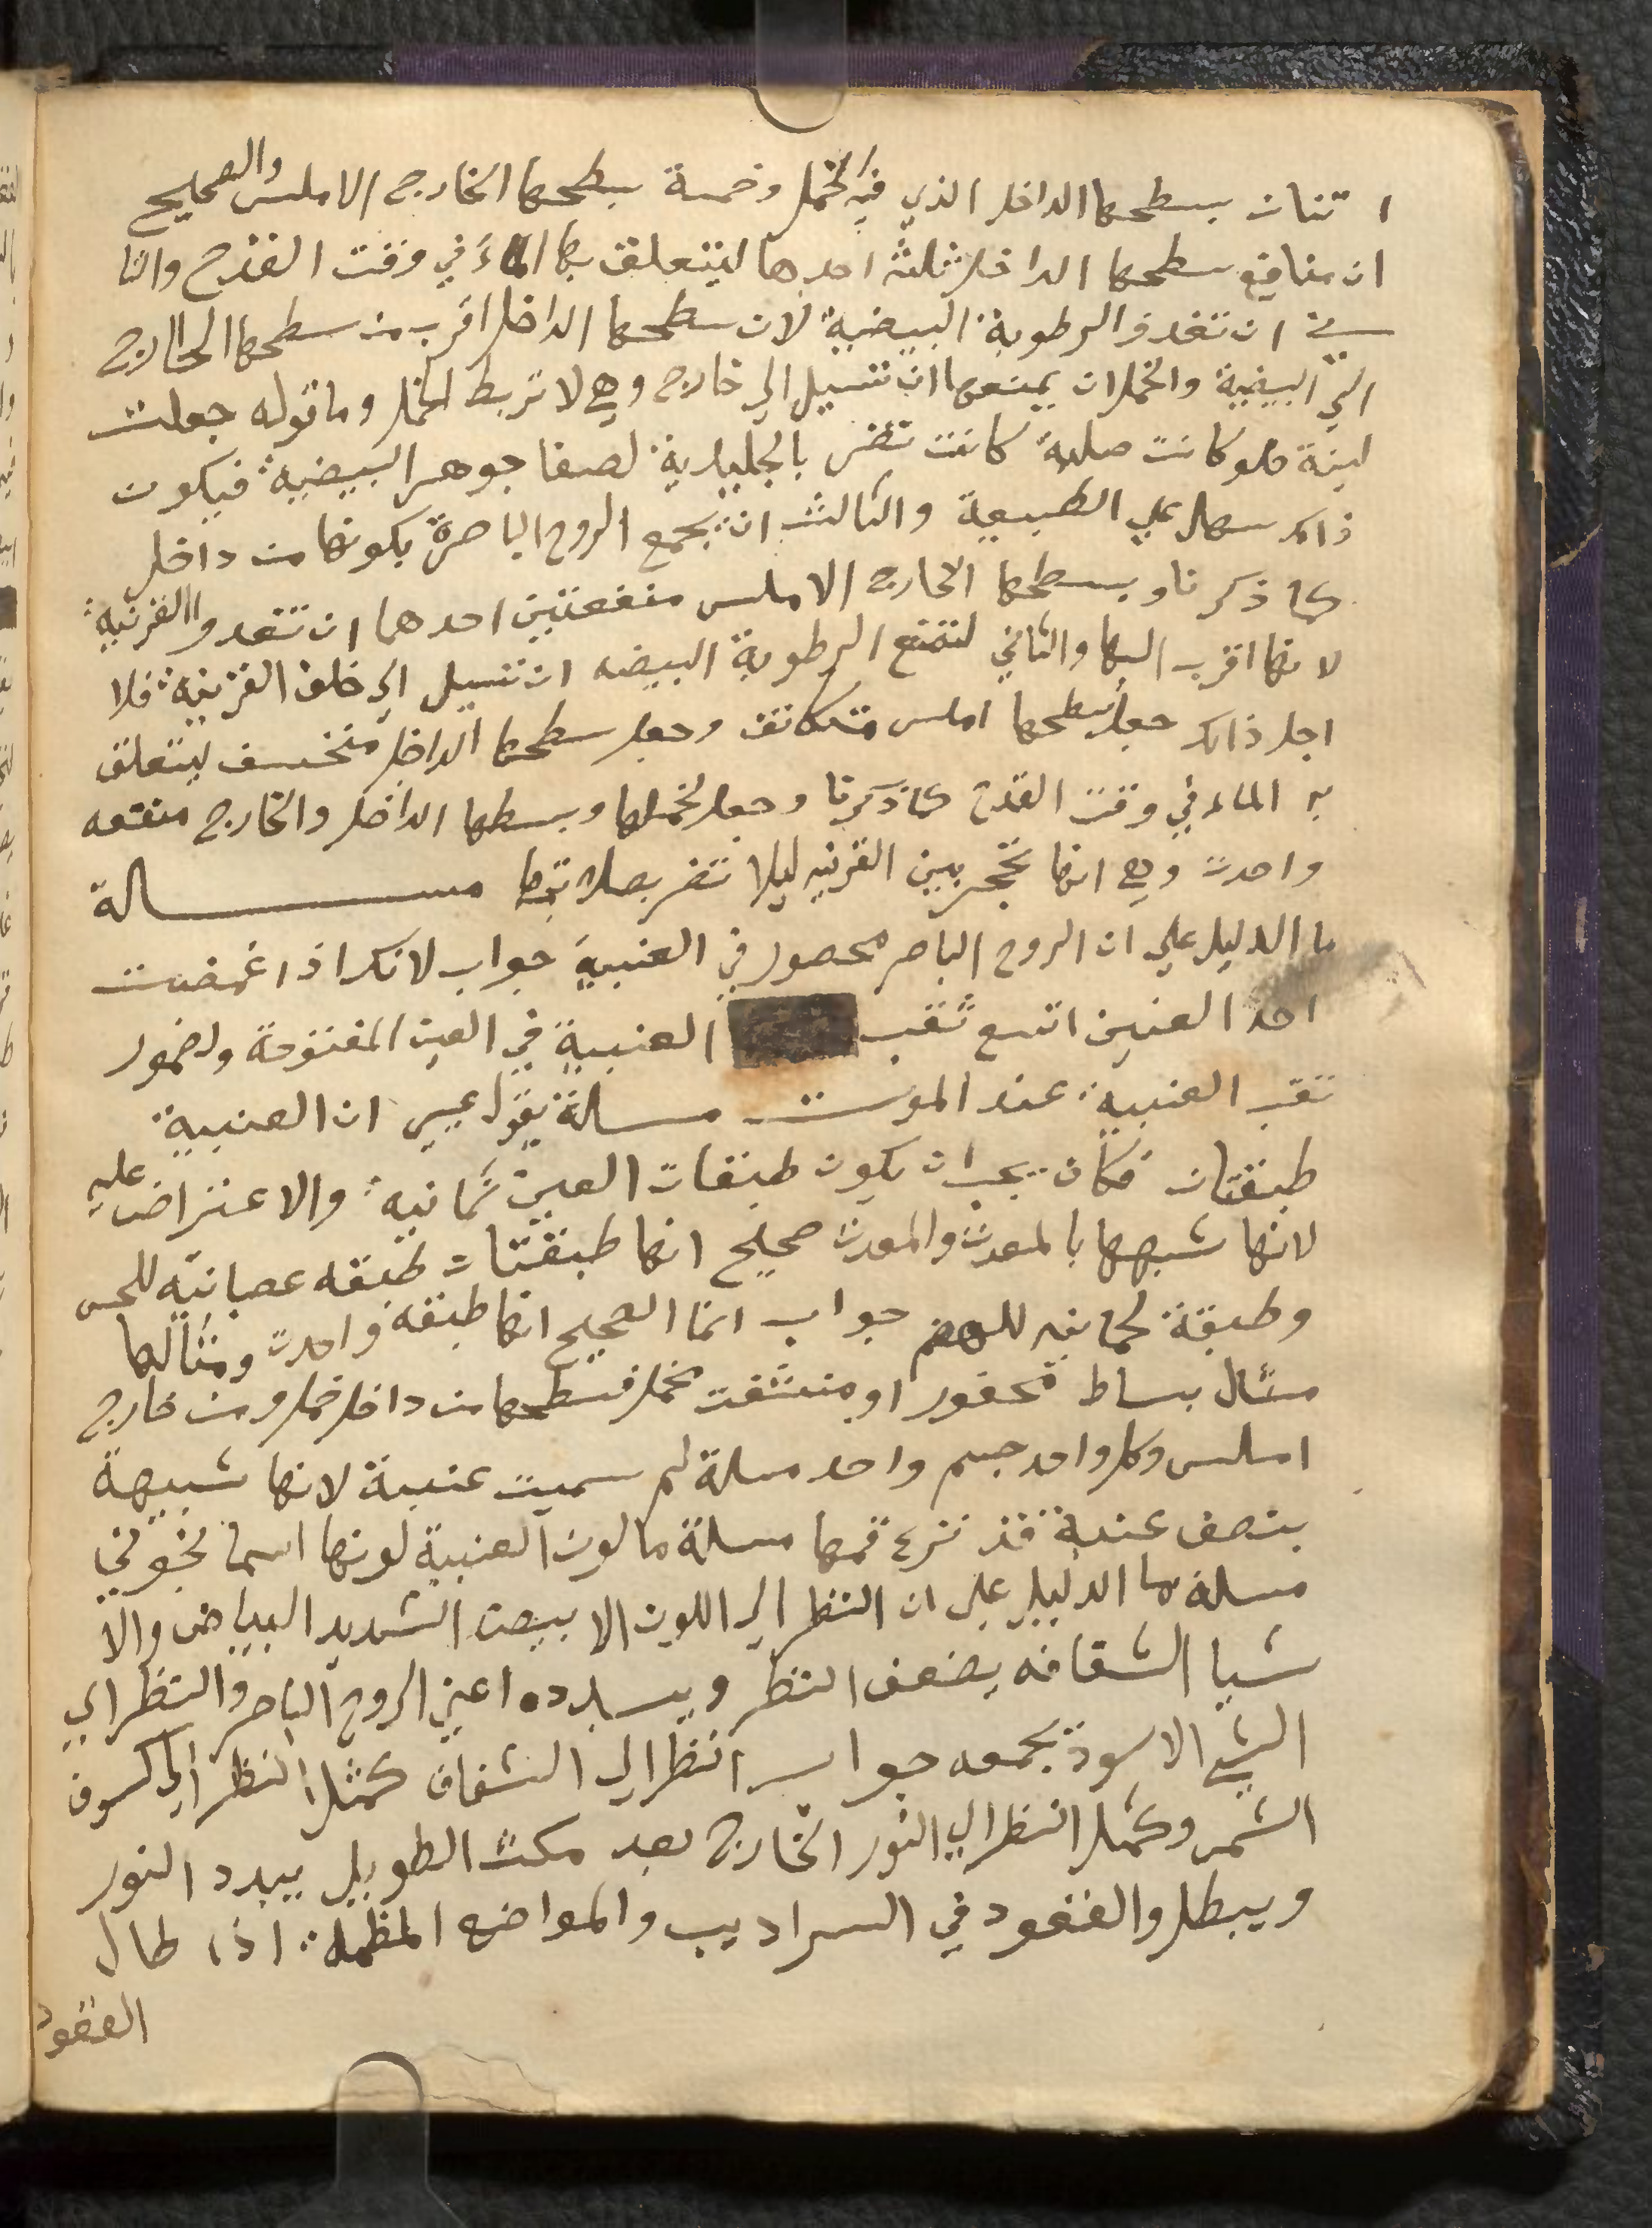 اتنات بسطحها الداخل الذي فيه الخمل وخمسة بسطحها الخارج الاملس والصحيح
ان منافع سطحها الداخل ثلثه احدها ليتعلق بها الماء في وقت القدح والثا
ني ان تغذوا الرطوبة البيضية لان سطحها الداخل اقرب من سطحها الخارج
الي البيضية والخملات يمنعها ان تسيل الي خارج وهي لا تربط الخمل وما توله جعلت
لينة فلو كانت صلبة كانت تضر بالجليدية لصفا جوهر البيضية فيكون
ذلك سهل علي الطبيعة والثالث ان يجمع الروح الباصرة بكونها من داخل
كما ذكرنا وبسطحها الخارج الاملس منفعتين احدهما ان تغدوا القرنية
لانها اقرب اليها والثاني لتمنع الرطوبة البيضه ان تسيل الي خلف القرنية فلا
اجل ذلك جعل سطحها املس متكاثف وجعل سطحها الداخل منخسف ليتعلق
به الماء في وقت القدح كما ذكرنا وجعل لخملها وبسطها الداخل والخارج منفعه
واحدت وهي انها تحجز بين القرنيه ليلا تضر بصلابتها مسالة
ما الدليل علي ان الروح الباصر محصور في العنبية جواب لانك اذا غمضت
احد العنين اتسع ثقب العنبية في العين المفتوحة ولضمور
ثقب العنبية عند الموت مسالة يقول عيسي ان العنبية
طبقتان فكان يجب ان يكون طبقات العين ثمانيه والاعتراض عليه
لانها شبهها بالمعدت والمعدت صحيح انها طبقتات طبقه عصبانيه للحس
وطبقة لحمانيه للهضم جواب انما الصحيح انها طبقه واحدت ومثالها
مثال بساط محفور او منشفت مخمل فسطحها من داخل خمل ومن خارج
املس وكل واحد جسم واحد مسلة لم سميت عنبية لانها شبيهة
بنصف عنبة قد نزع قمعها مسلة ما لون العنبية لونها اسمانجوني
مسلة ما الدليل علي ان النظر الي اللون الابيض الشديد البياض والا
شيا الشفافه يضعف النظر ويبدده اعني الروح الباصر والنظر الي
الشي الاسود يجمعه جواب النظر الي الشفاف كمثل النظر الي كسوف
الشمس وكمثل النظر الي النور الخارج بعد مكث الطويل يبدد النور
ويبطل والقعود في السراديب والمواضع المظلمة اذا طال
القعود